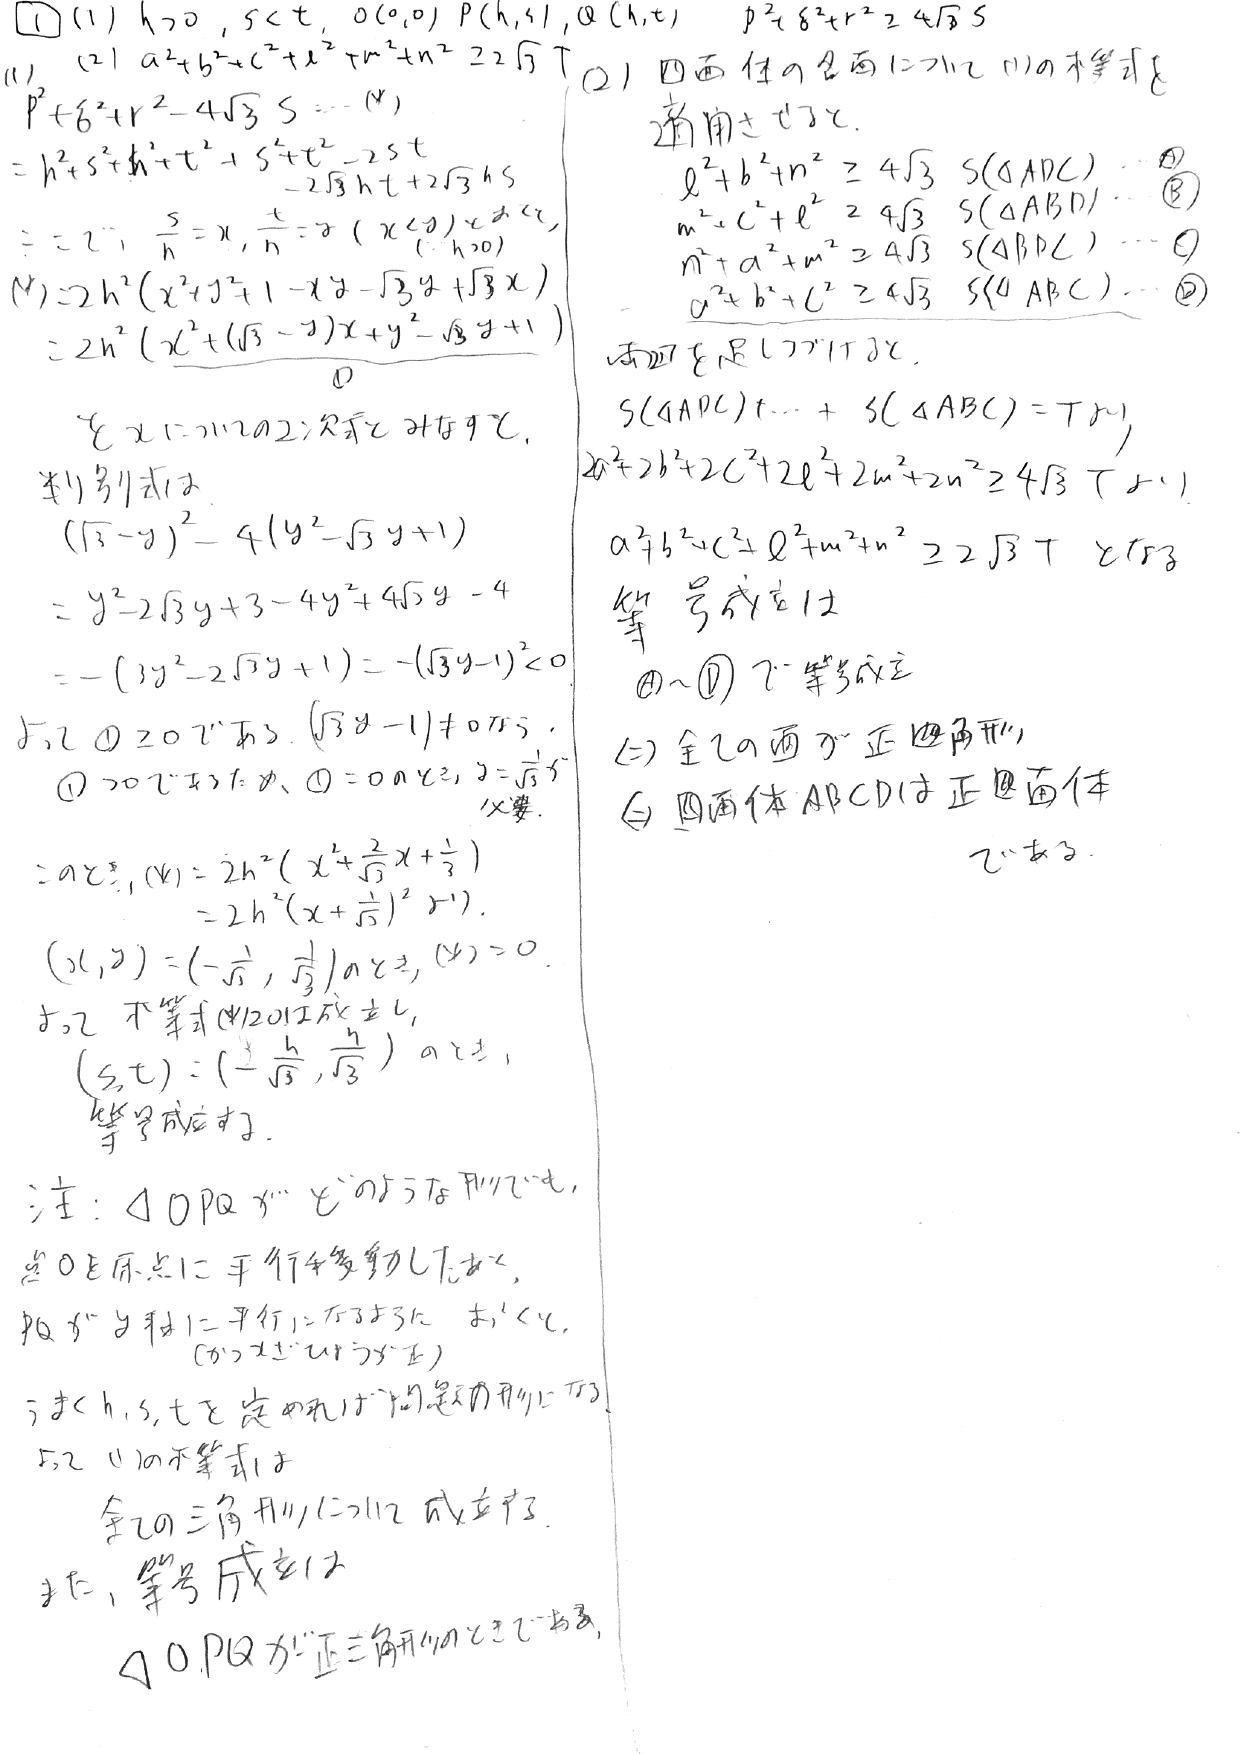 1 (1) h>0, s<t, O(0,0) P(h,s), Q(h,t) p²+q²+r²≥4√3 S
(2) a²+b²+c²+l²+m²+n²≥2√3 T
(1)
p²+q²+r²-4√3 S …(*)
=h²+s²+h²+t²+s²+t²-2st
-2√3ht+2√3hs
ここで, s/h=x, t/h=y (x<y) とおくと,
(∵h>0)
(*)=2h²(x²+y²+1-xy-√3y+√3x)
=2h²(x²+(√3-y)x+y²-√3y+1)
①
をxについての2次式とみなすと,
判別式は
(√3-y)²-4(y²-√3y+1)
=y²-2√3y+3-4y²+4√3y-4
=-(3y²-2√3y+1)=-(√3y-1)²<0
よって①≥0である. (√3y-1)≠0なら,
①>0であるため、①=0のとき, y=1/√3が
必要.
このとき, (*)=2h²(x²+2/√3x+1/3)
=2h²(x+1/√3)²より.
(x,y)=(-1/√3, 1/√3)のとき, (*)=0.
よって不等式(*)≥0は成立し,
(s,t)=(-h/√3, h/√3)のとき,
等号成立する.
注:△OPQがどのような形でも,
点Oを原点に平行移動したあと,
PQがy軸に平行になるようにおくと,
(かつxざひょうが正)
うまくh,s,tを定めれば問題の形になる
よって(1)の不等式は
全ての三角形について成立する.
また,等号成立は
△OPQが正三角形のときである,
(2) 四面体の各面について(1)の不等式を
適用させると.
l²+b²+n²≥4√3 S(△ADC)…Ⓐ
m²+c²+l²≥4√3 S(△ABD)…Ⓑ
n²+a²+m²≥4√3 S(△BDC)…Ⓒ
a²+b²+c²≥4√3 S(△ABC)…Ⓓ
を足しつづけると.
S(△ADC)+…+S(△ABC)=Tより,
2a²+2b²+2c²+2l²+2m²+2n²≥4√3 Tより
a²+b²+c²+l²+m²+n²≥2√3 T となる
等号成立は
Ⓐ~Ⓓで等号成立
⇔全ての面が正四角形
⇔四面体ABCDは正四面体
である.